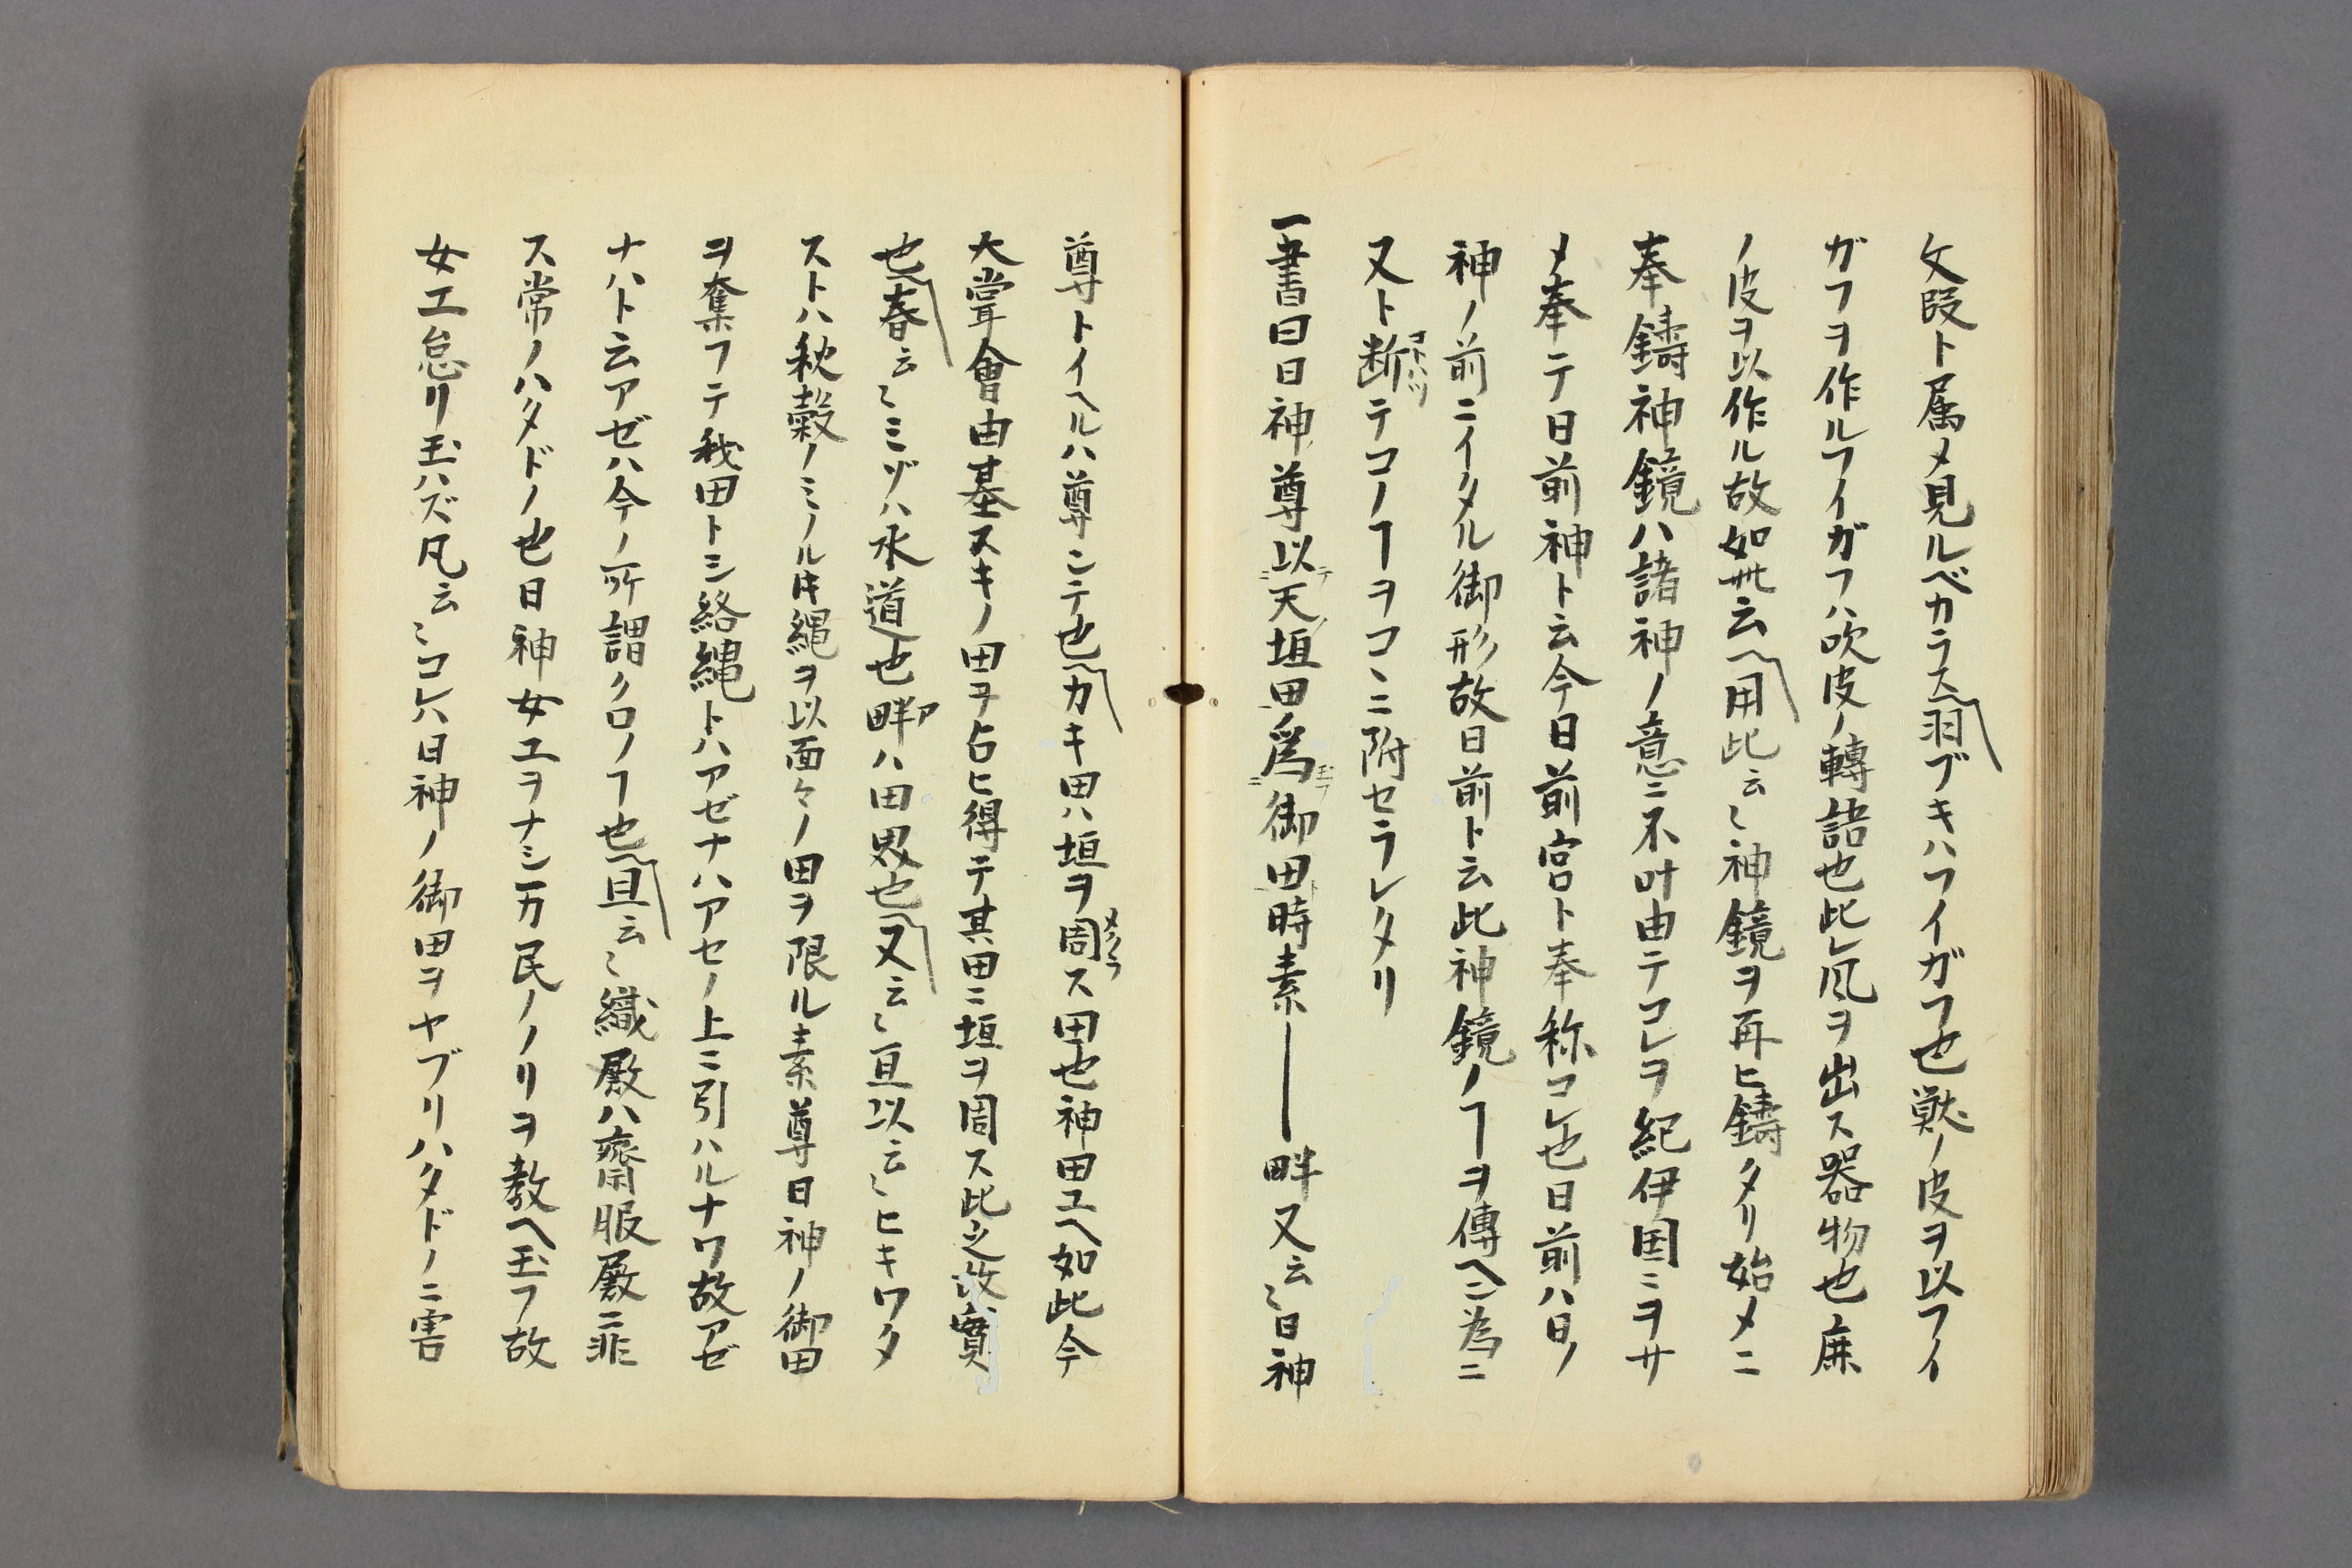 文段ト属メ見ルベカラス羽ブキハフイガフ也獣ノ皮ヲ以フイ
ガフヲ作ルフイガフハ吹皮ノ轉語也此レ風ヲ出ス器物也鹿
ノ皮ヲ以作ル故如此云ヘ用此云〻神鏡ヲ再ヒ鑄タリ始メニ
奉鑄神鏡ハ諸神ノ意ニ不叶由テコレヲ紀伊国ニヲサ
メ奉テ日前神ト云今日前宮ト奉称コレ也日前ハ日ノ
神ノ前ニイタル御形故日前ト云此神鏡ノヿヲ傳ヘン為ニ
又ト断テコノヿヲコヽニ附セラレタリ
一書曰日神尊以天垣田為御田時素―畔又云〻日神
尊トイヘルハ尊ンテ也カキ田ハ垣ヲ周ス田也神田ユヘ如此今
大嘗會由基スキノ田ヲ占ヒ得テ其田ニ垣ヲ周ス此之故實
也春云〻ミゾハ水道也畔ハ田界也又云〻亘以云〻ヒキワタ
ストハ秋穀ノミノル時縄ヲ以面々ノ田ヲ限ル素尊日神ノ御田
ヲ奪フテ我田トシ絡縄トハアゼナハアセノ上ニ引ハルナワ故アゼ
ナハト云アゼハ今ノ所謂クロノヿ也且云〻織殿ハ齋服殿ニ非
ス常ノハタドノ也日神女工ヲナシ万民ノノリヲ教ヘ玉フ故
女工怠リ玉ハズ凡云〻コレハ日神ノ御田ヲヤブリハタドノニ害